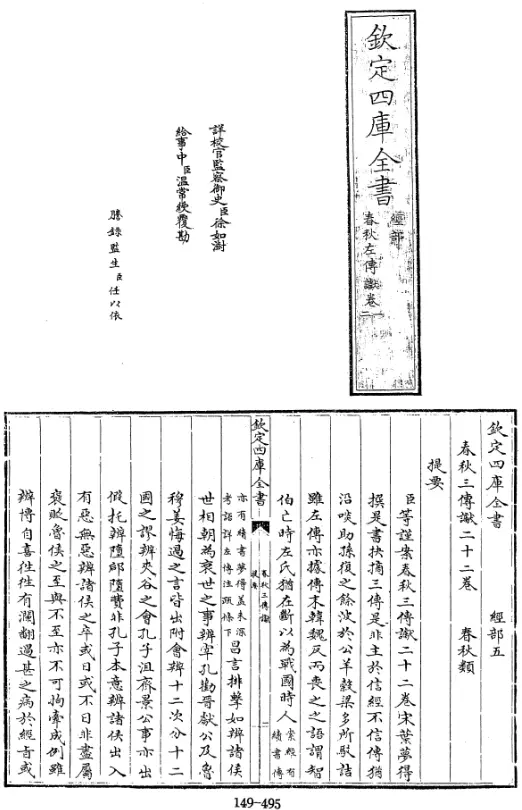 欽定四庫全書
經部
春秋左傳讞卷一
二
詳校官監察御史臣徐如澍
給事中臣溫常綬覆勘
謄錄監生臣任以依
欽定四庫全書 經部五
春秋三傳讞二十二卷 春秋類
提要
臣等謹案春秋三傳讞二十二卷宋葉夢得
撰是書抉摘三傳是非主於信經不信傳猶
沿啖助孫復之餘波於公羊穀梁多所駁詰
雖左傳亦據傳末韓魏反而喪之之語謂智
伯亡時左氏猶在斷以為戰國時人案經有續書傳
欽定四庫全書 春秋三傳讞 提要 二
亦有續書夢得蓋未深考語詳左傳注疏條下昌言排擊如辨諸侯
世相朝為衰世之事辨宰孔勸晉獻公及魯
穆姜悔過之言皆出附會辨十二次分十二
國之謬辨夾谷之會孔子沮齊景公事亦出
假托辨墮郈墮費非孔子本意辨諸侯出入
有惡無惡辨諸侯之卒或日或不日非盡屬
褒貶魯侯之至與不至亦不可拘牽成例雖
辨博自喜往往有瀾翻過甚之病於經旨或
149-495